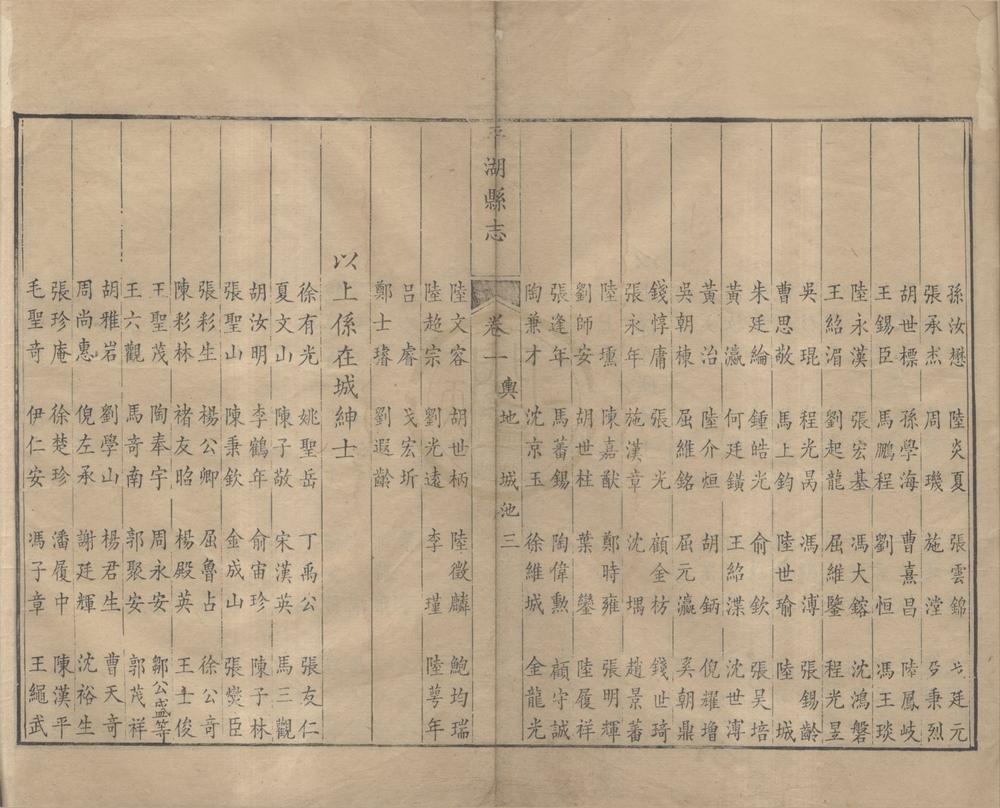 孫汝懋 陸炎夏 張雲錦 廷元
張承杰 周璣 施瀅 秉烈
胡世標 孫學海 曹熹昌 陸鳳岐
王錫臣 馬鵬程 劉恒 馮王琰
陸永漢 張宏基 馮大鎔 沈鴻磐
王紹湄 劉起龍 屈維鑒 程光昱
吳琨 程光昺 馮溥 張錫齡
曹思敬 馬上鈞 陸世瑜 陸城
朱廷綸 鍾皓光 俞欽 張吴培
黃瀛 何廷鐄 王紹渫 沈世漙
黃治 陸介烜 胡鈵 倪耀增
吳朝棟 屈維銘 屈元瀛 奚朝鼎
錢惇庸 張光 顧金枋 錢世琦
張永年 施漢章 沈堣 趙景蕃
陸壎 陳嘉猷 鄭時雍 張明輝
劉師安 胡世柱 葉鑾 陸履祥
張逢年 馬蕃錫 陶偉勲 顧守誠
陶兼才 沈京玉 徐維城 金龍光
平湖縣志 卷一 輿地 城池 三
陸文容 胡世柄 陸徵麟 鮑均瑞
陸超宗 劉光遠 李瑾 陸萼年
呂睿 戈宏圻
鄭士璿 劉遐齡
以上係在城紳士
徐有光 姚聖岳 丁禹公 張友仁
夏文山 陳子敬 宋漢英 馬三觀
胡汝明 李鶴年 俞宙珍 陳子林
張聖山 陳秉欽 金成山 張爕臣
張彩生 楊公卿 屈魯占 徐公奇
陳彩林 褚友昭 楊殿英 王士俊
王聖茂 陶奉宇 周永安 鄒公盛等
王六觀 馬奇南 郭聚安 郭茂祥
胡雅岩 劉學山 楊君生 曹天奇
周尚惠 倪左承 謝廷輝 沈裕生
張珍庵 徐楚珍 潘履中 陳漢平
毛聖奇 伊仁安 馮子章 王繩武